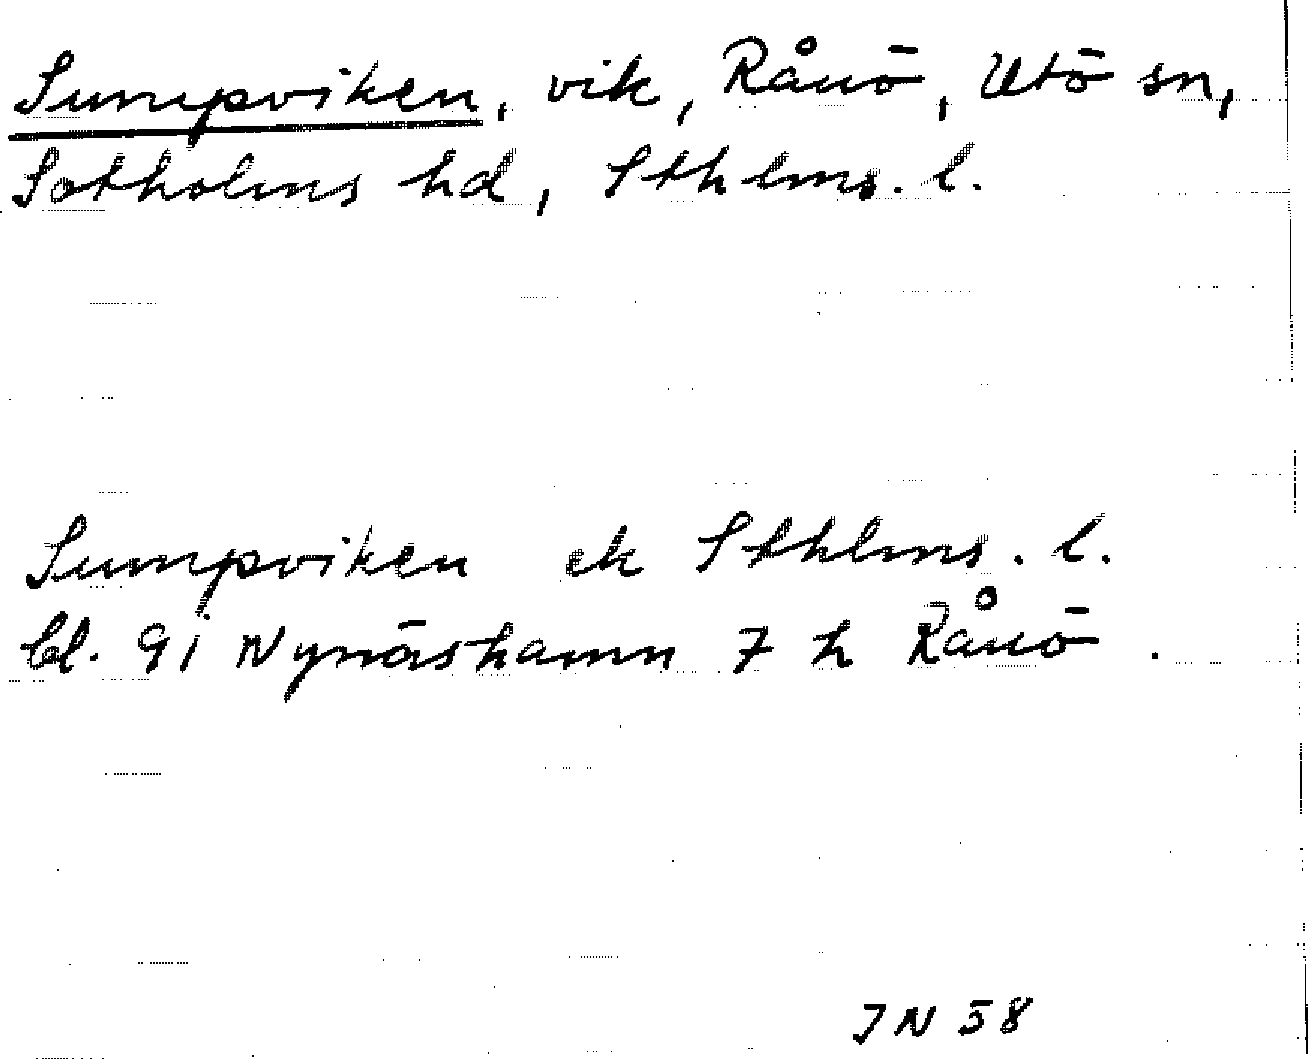 Sumpviken, vik, Rånö, Utö sn,
Sotholms hd, Sthlms. l.
Sumpviken ek Sthlms. l.
bl. 91 Nynäshamn 7 h Rånö.
JN 58